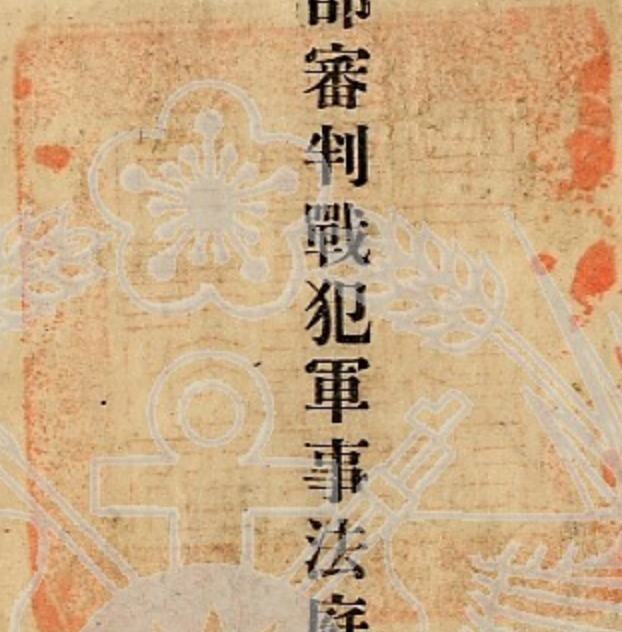 部審判戰犯軍事法庭